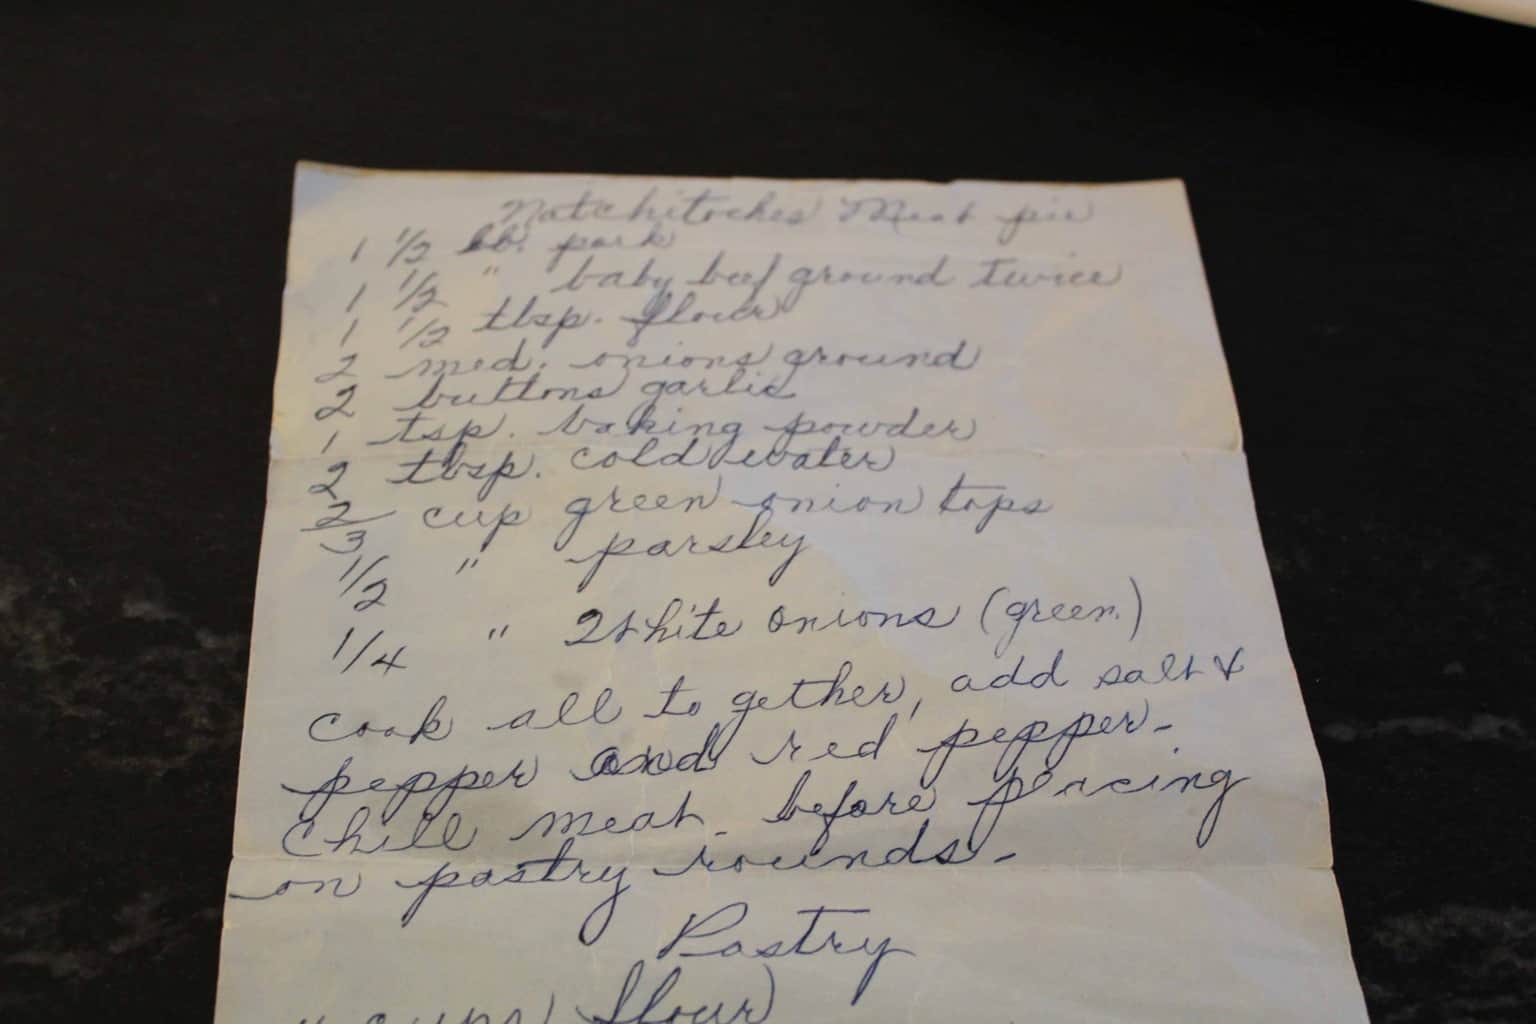 Natchitoches Meat pie
1 1/2 lb. pork
1 1/2 " baby beef ground twice
1 1/2 tbsp. flour
2 med. onions ground
2 buttons garlic
1 tsp. baking powder
2 tbsp. cold water
2/3 cup green onion tops
1/2 " parsley
1/4 " White onions (green)
Cook all to gether, add salt &
pepper and red pepper-
Chill meat before piecing
on pastry rounds-
Pastry
cups flour